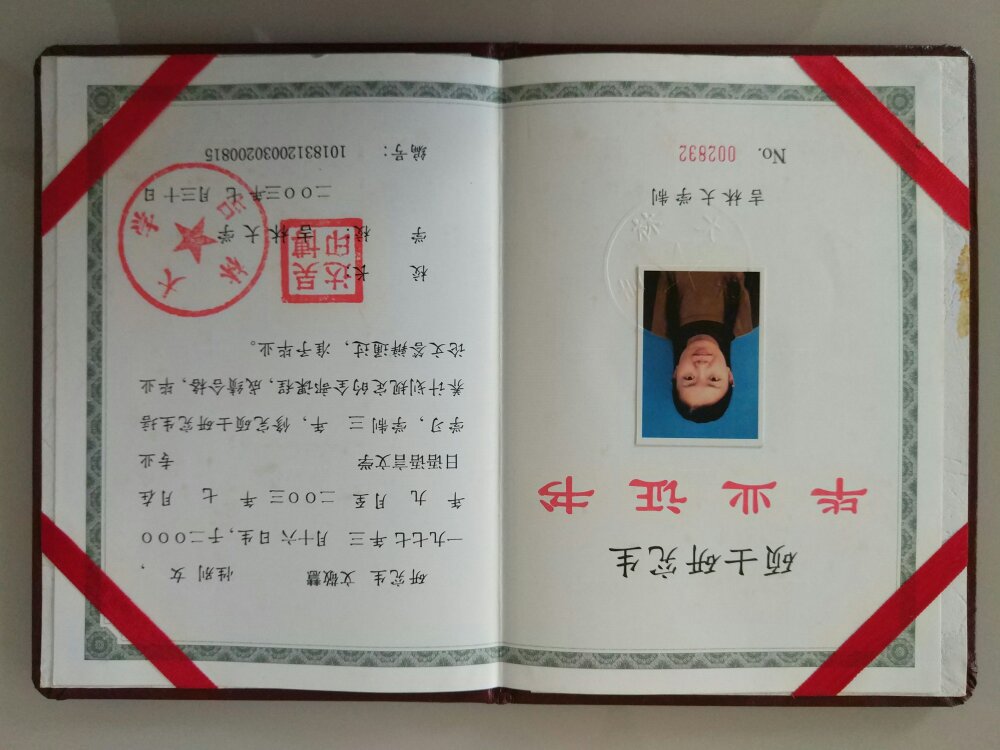 硕士研究生
毕业证书
吉林大学制
No. 002832
研究生 文敏慧 性别 女 ,
一九七七年 三 月十六日生,于二〇〇〇
年 九 月至 二〇〇三 年 七 月在
日语语言文学 专业
学习,学制 三 年,修完硕士研究生培
养计划规定的全部课程,成绩合格,毕业
论文答辩通过,准予毕业。
校 长:
吴博达印
学 校: 吉林大学
吉林大学
二〇〇三年 七 月三十日
编号: 10183120030200815